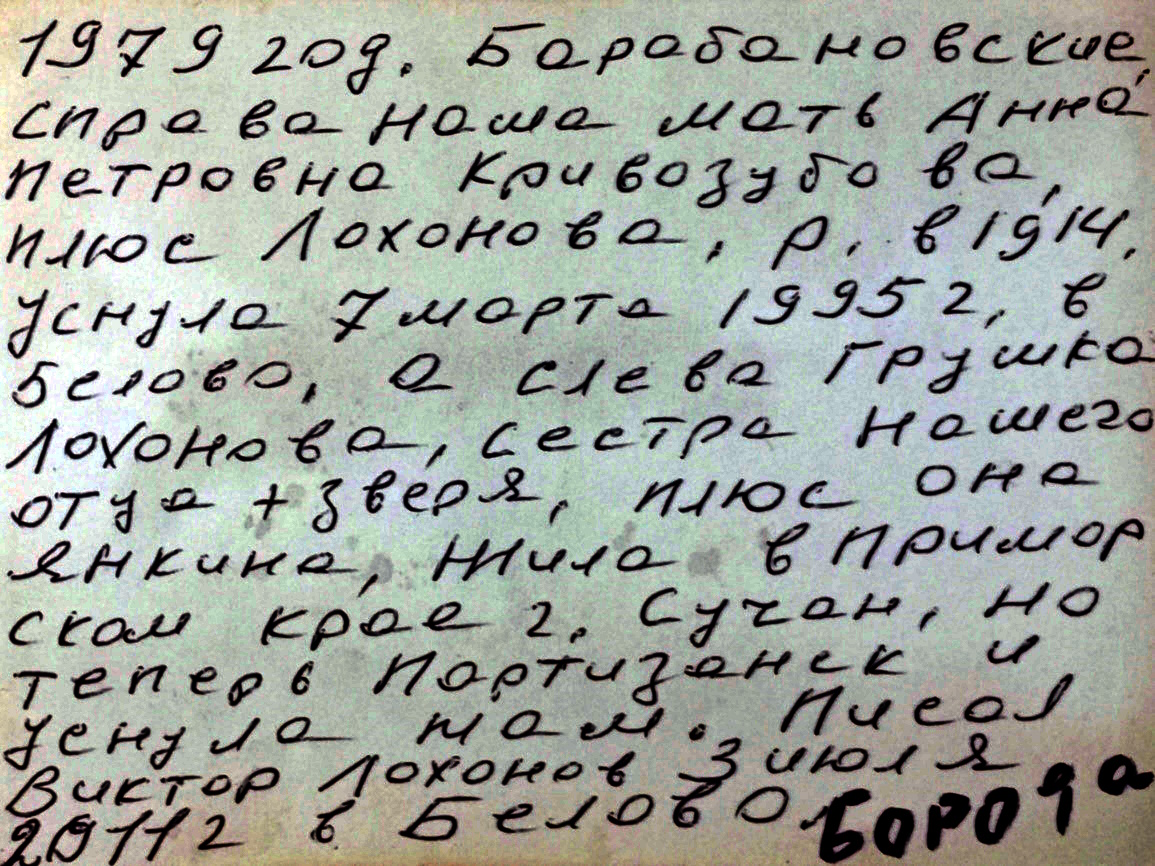 1979 год. Барабановские,
справа наша мать Анна
Петровна Кривозубова,
плюс Лохонова, р. в 1914,
уснула 7 марта 1995 г. в
Белово, а слева Грушка
Лохонова, сестра нашего
отца + зверя, плюс она
Янкина, жила в Примор
ском крае г. Сучан, но
теперь Партизанск и
уснула там. Писал
Виктор Лохонов 3 июля
2011 г в Белово.
БОРОДа